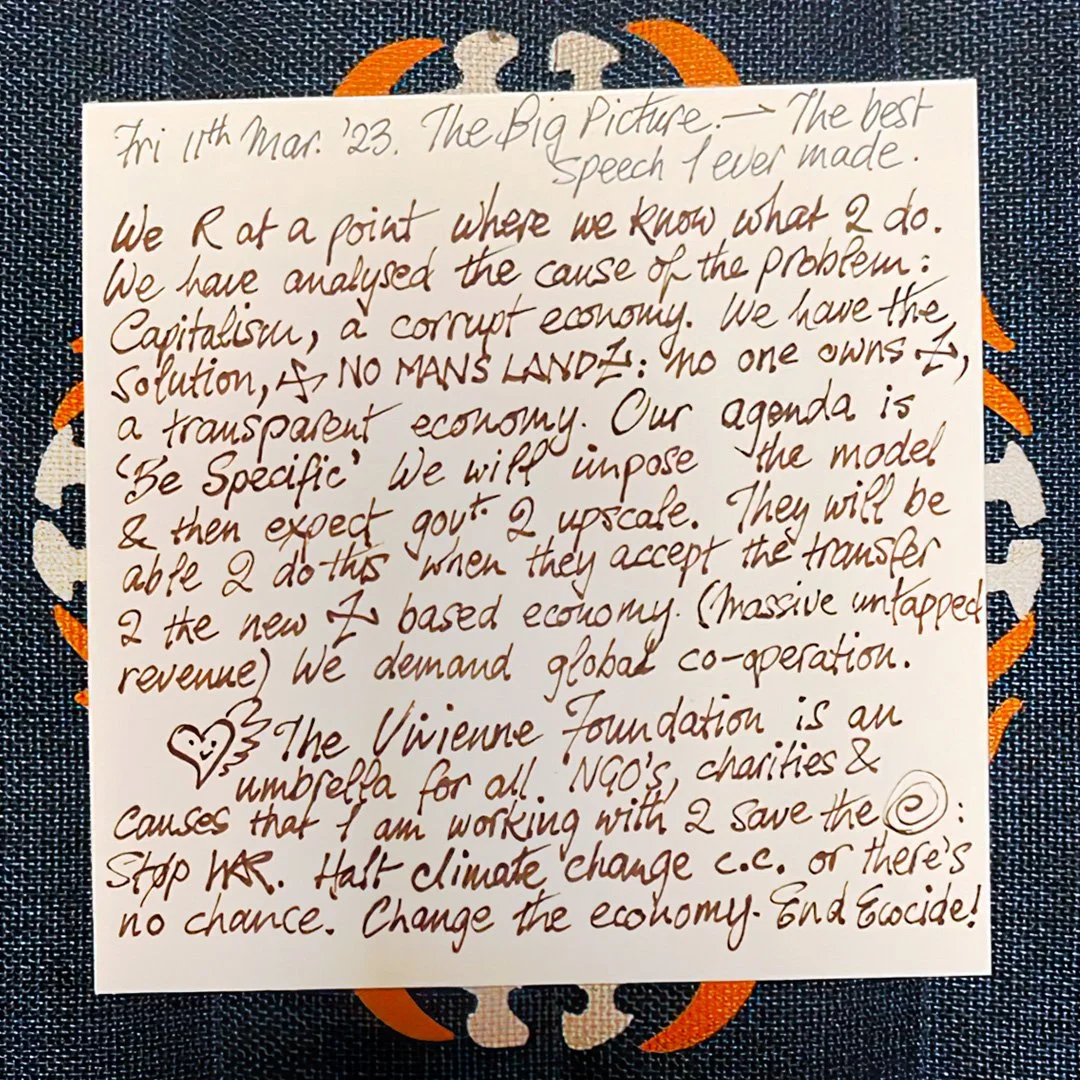 Fri 11th Mar. '23. The Big Picture. → The best
speech I ever made.
We R at a point where we know what 2 do.
We have analysed the cause of the problem:
Capitalism, a corrupt economy. We have the
solution, NO MANS LAND: no one owns
a transparent economy. Our agenda is
'Be Specific' We will impose the model
& then expect govt. 2 upscale. They will be
able 2 do this when they accept the transfer
2 the new based economy. (Massive untapped
revenue) We demand global co-operation.
The Vivienne Foundation is an
umbrella for all NGO's, charities &
causes that I am working with 2 save the e:
Stop WAR. Halt climate change c.c. or there's
no chance. Change the economy. End Ecocide!